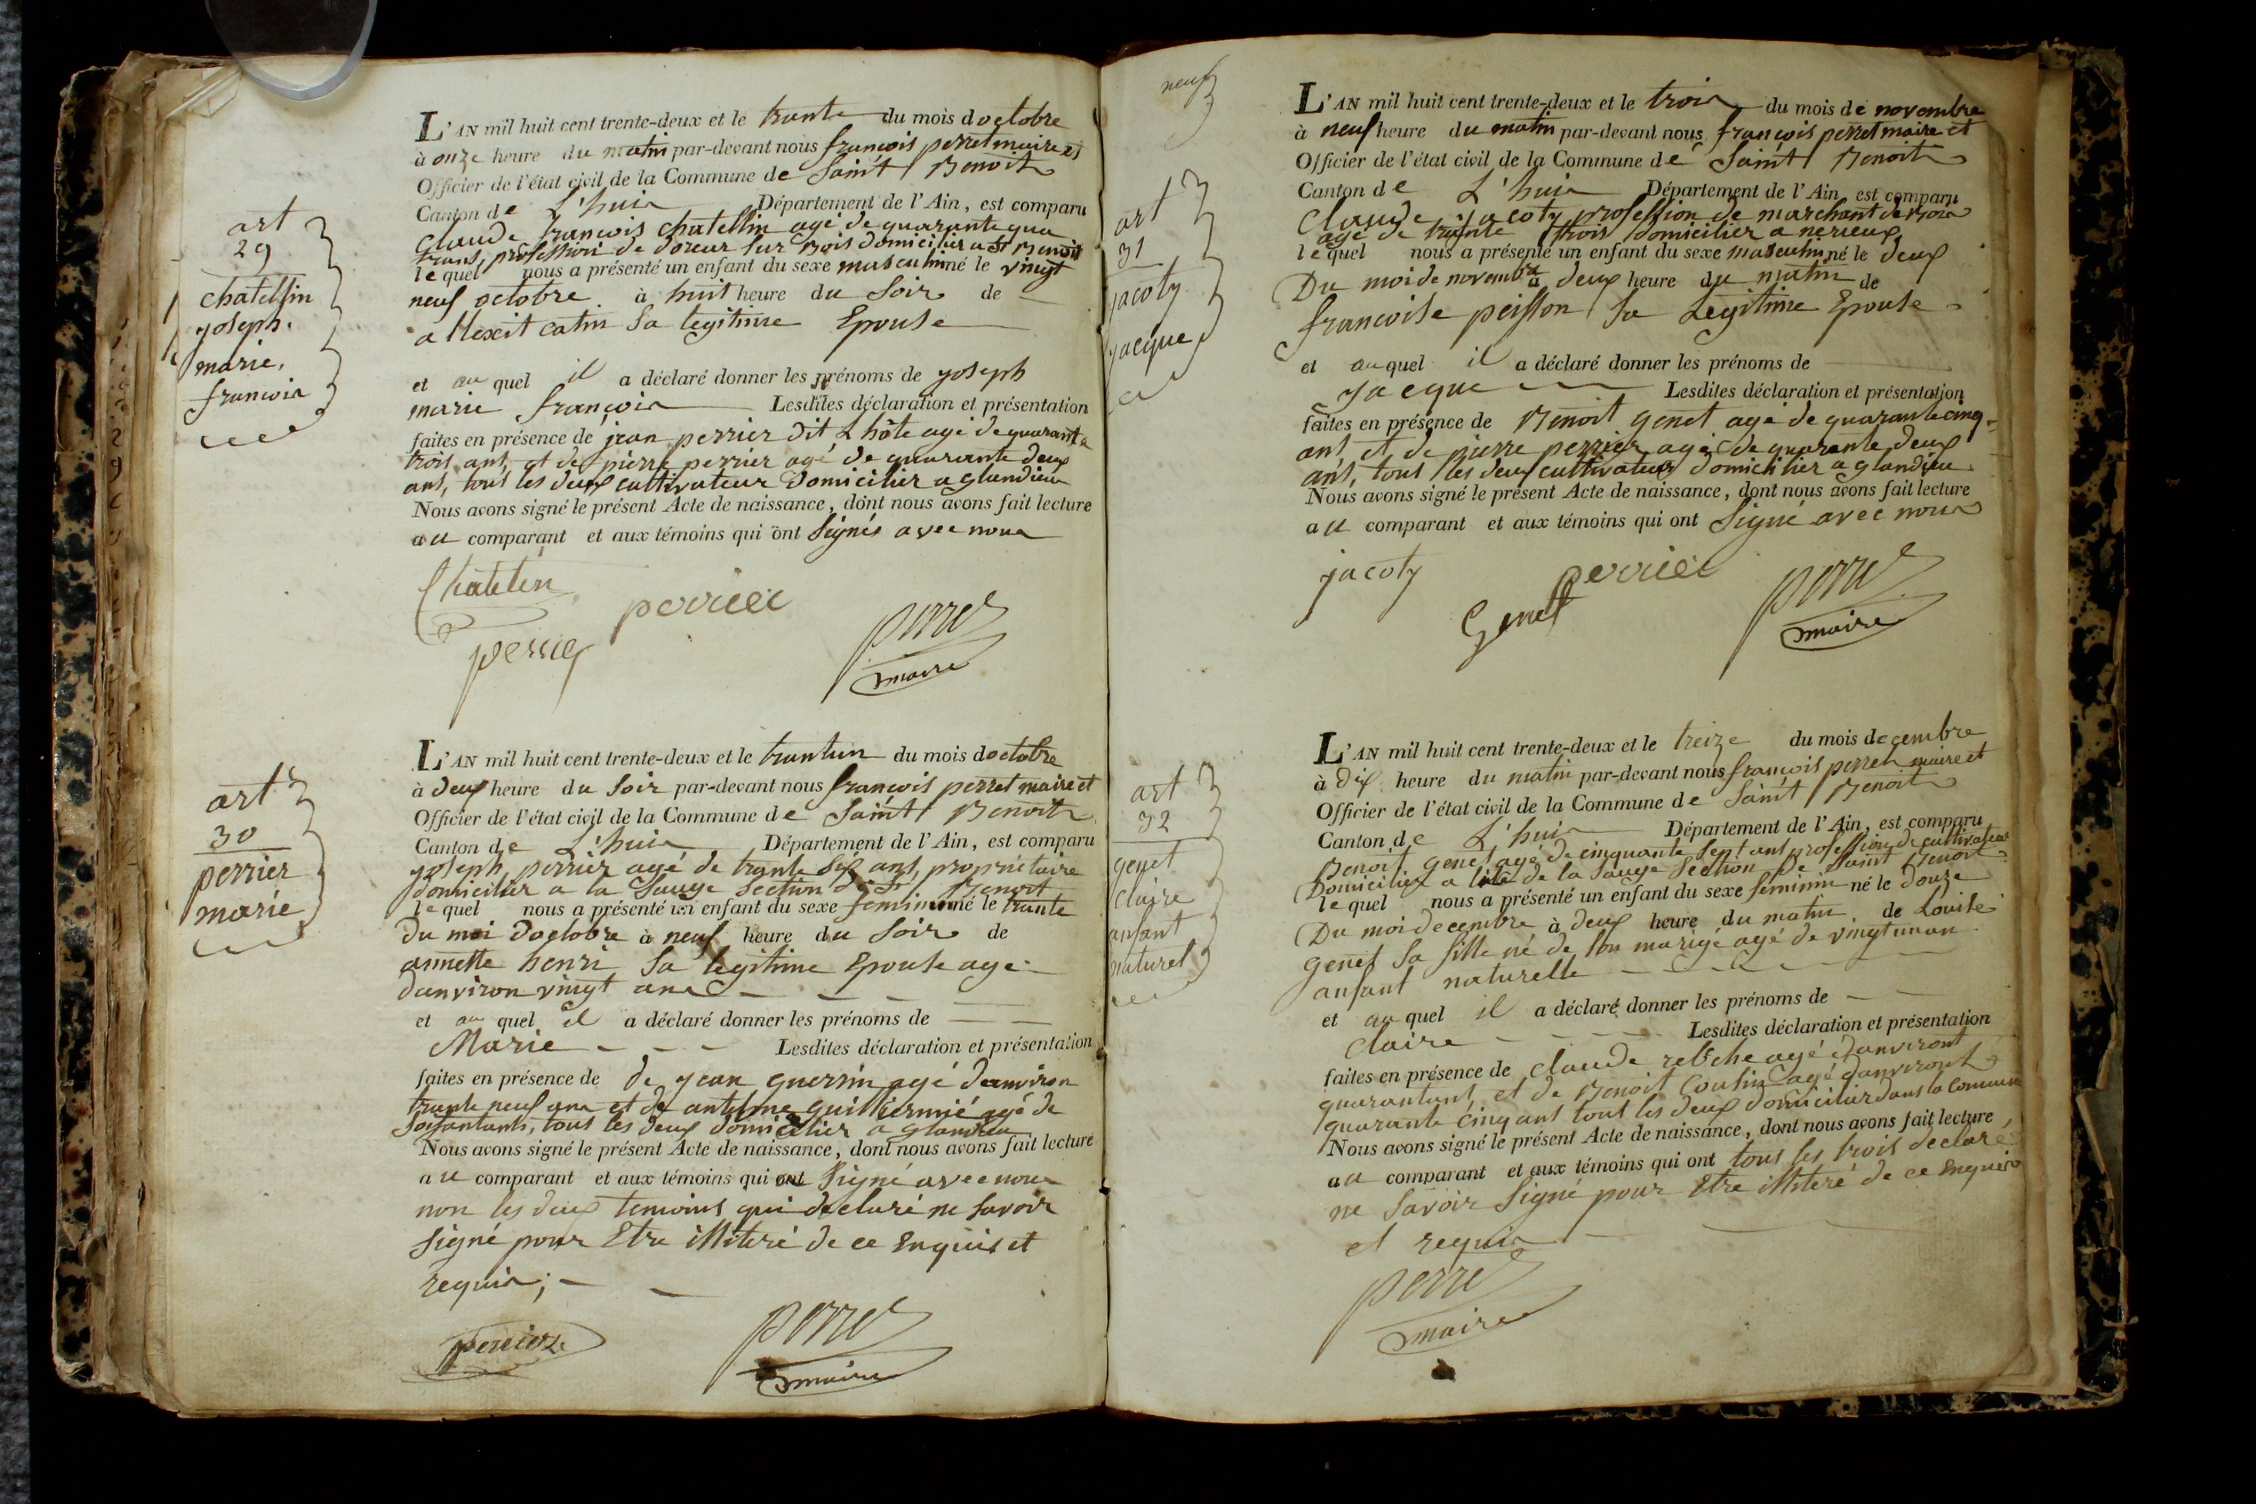 art
29
chatellin
joseph.
marie.
francoia
L'AN mil huit cent trente-deux et le trante du mois doctobre
à onze heure du matin par-devant nous francois perret maire et
Officier de l'état civil de la Commune de Saint Benoit
Canton de L'huis Département de l'Ain, est comparu
Claude francois chatellin agé de quarante qua
trans, profession de doreur sur bois domicilier a St Benoit
le quel nous a présenté un enfant du sexe masculin né le vingt
neuf octobre à huit heure du Soir de
Catin Sa legitime Epouse
et au quel il a déclaré donner les prénoms de joseph
marie françoia Lesdites déclaration et présentation
faites en présence de jean perrier dit L'hôte agé de quarant
trois ans, et de pierre perrier agé de quarante deux
ans, tous les deux cultivateur domicilier a glandieu
Nous avons signé le présent Acte de naissance, dont nous avons fait lecture
au comparant et aux témoins qui ont Signés avec noua
Chatelin
perrier
perrier
perret
maire
art
30
perrier
marie
L'AN mil huit cent trente-deux et le trantun du mois doctobre
à deux heure du Soir par-devant nous francois perret maire et
Officier de l'état civil de la Commune de Saint Benoit
Canton de L'huis Département de l'Ain, est comparu
joseph perrier agé de trante six ans, propriétaire
domicilier a la Sauge Section de St Benoit
le quel nous a présenté un enfant du sexe feminin né le trante
du moi doctobre à neuf heure du Soir de
annette henri Sa legitime Epouse agé
danviron vingt ans
et au quel il a déclaré donner les prénoms de
Marie Lesdites déclaration et présentation
faites en présence de de jean guersin agé danviron
trante neuf ans et de antelme guillermié agé de
Soixantans, tous les deux domicilier a glandieu
Nous avons signé le présent Acte de naissance, dont nous avons fait lecture
au comparant et aux témoins qui ont Signé avec nous
non les deux temoins qui declaré ne Savoir
Signé pour Etre illiteré de ce Enquis et
requis;
perrier
perret
maire
neuf
art
31
jacoty
jacque
L'AN mil huit cent trente-deux et le trois du mois de novembre
à neuf heure du matin par-devant nous françois perret maire et
Officier de l'état civil de la Commune de Saint Benoit
Canton de L'huis Département de l'Ain, est comparu
Claude jacoty profession de marchant de
agé de trante trois domicilier a nerieux
le quel nous a présenté un enfant du sexe masculin né le deux
Du moi de novembre à deux heure du matin de
francoise peisson Sa Legitime Epouse
et au quel il a déclaré donner les prénoms de
Jacque Lesdites déclaration et présentation
faites en présence de Benoit genet agé de quarante cinq
ans et de pierre perrier agé de quarante deux
ans, tous les deux cultivateur domicilier a glandieu
Nous avons signé le présent Acte de naissance, dont nous avons fait lecture
au comparant et aux témoins qui ont Signé avec nous
jacoty
perrier
Genet
perret
maire
art
32
genet
claire
anfant
naturel
L'AN mil huit cent trente-deux et le treize du mois decembre
à dix heure du matin par-devant nous françois perret maire et
Officier de l'état civil de la Commune de Saint Benoit
Canton de L'huis Département de l'Ain, est comparu
Benoit genet agé de cinquante Sept ans profession de cultivateur
Domicilier a de la Sauge Section de Saint Benoit
le quel nous a présenté un enfant du sexe feminin né le douze
Du moi decembre à deux heure du matin de Louise
genet Sa fille né de Son marige agé de vingt un an
anfant naturelle
et au quel il a déclaré donner les prénoms de
Claire Lesdites déclaration et présentation
faites en présence de claude agé danviront
quarantans et de Benoit Cousin agé danviront
quarante cinq ans tous les deux domicilier dans la Commune
Nous avons signé le présent Acte de naissance, dont nous avons fait lecture
au comparant et aux témoins qui ont tous les trois declaré
ne Savoir Signé pour Etre illiteré de ce Enquis
et requis
perret
maire